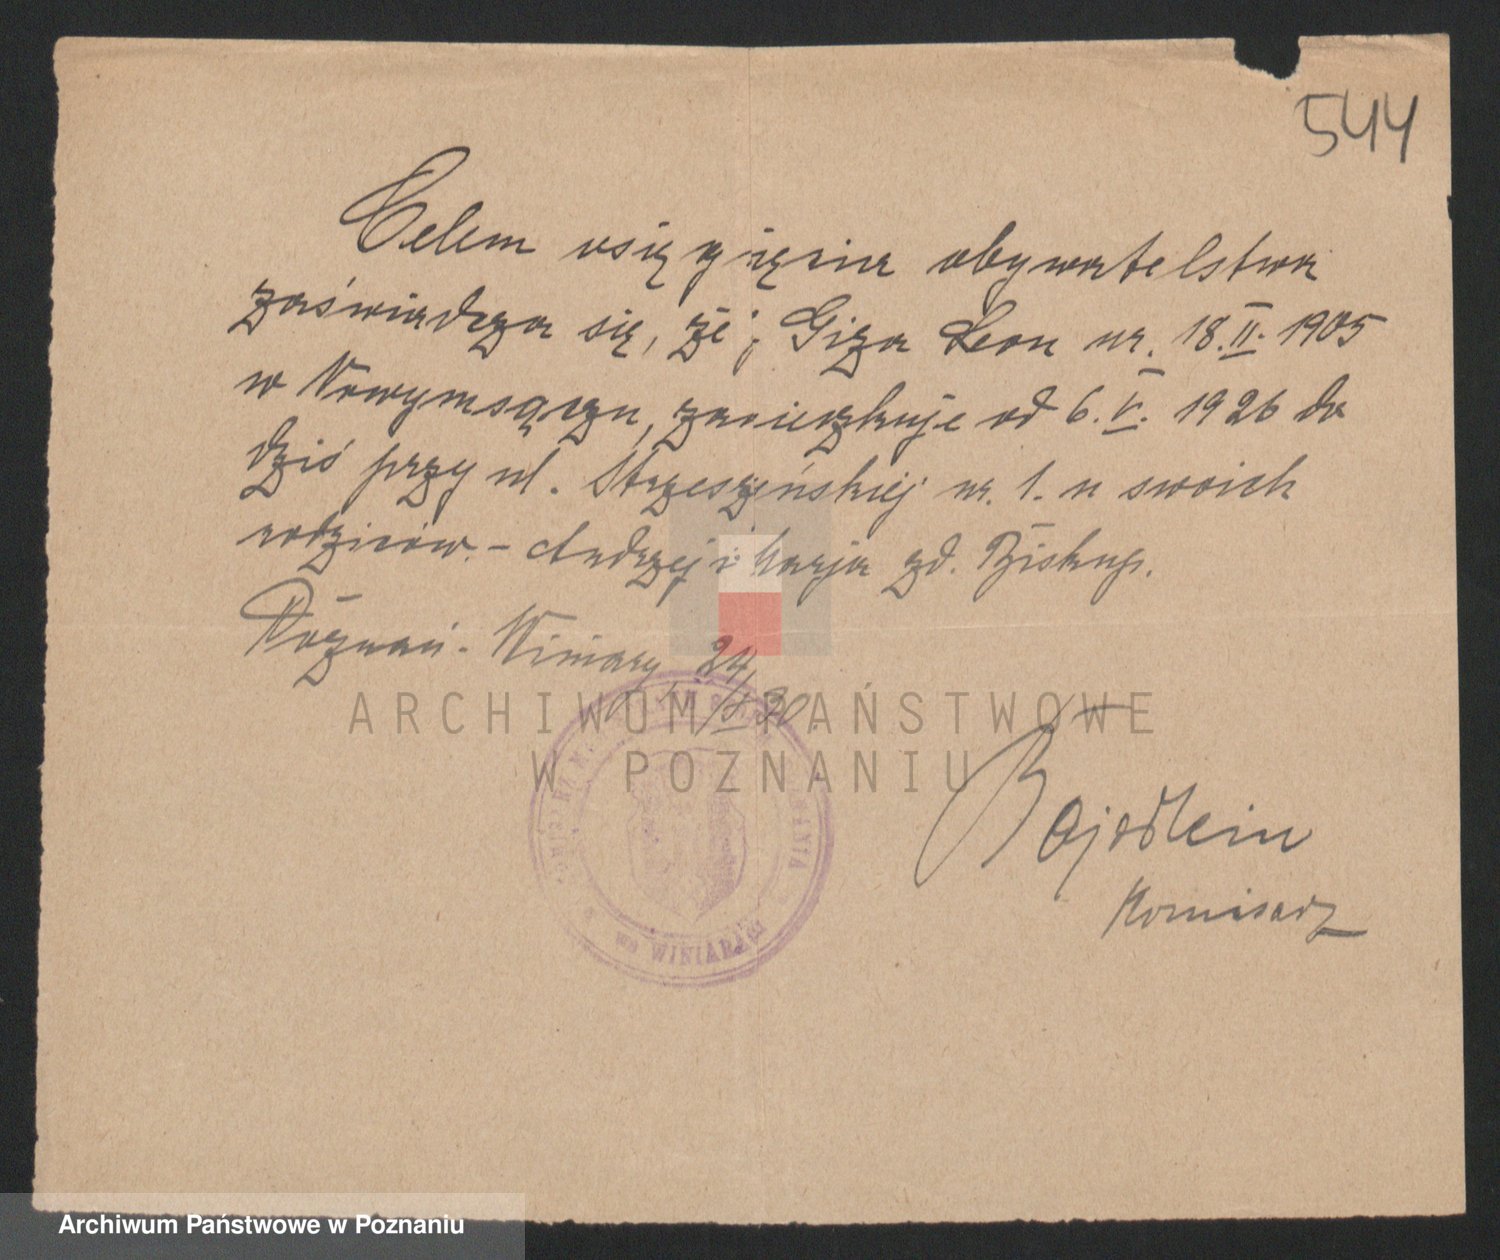 544
Celem osięgnięcia obywatelstwa
zaświadcza się, że p. Giza Leon ur. 18.II.1905
w Nowymsączu, zamieszkuje od 6.V.1926 do
dziś przy ul. Strzeszyńskiej nr. 1. u swoich
rodziców. - Andrzej i Marja zd. Biskup.
Poznań - Winiary 24/
30.
Komisarz
we WINIARACH
ARCHIWUM PAŃSTWOWE
W POZNANIU
Archiwum Państwowe w Poznaniu